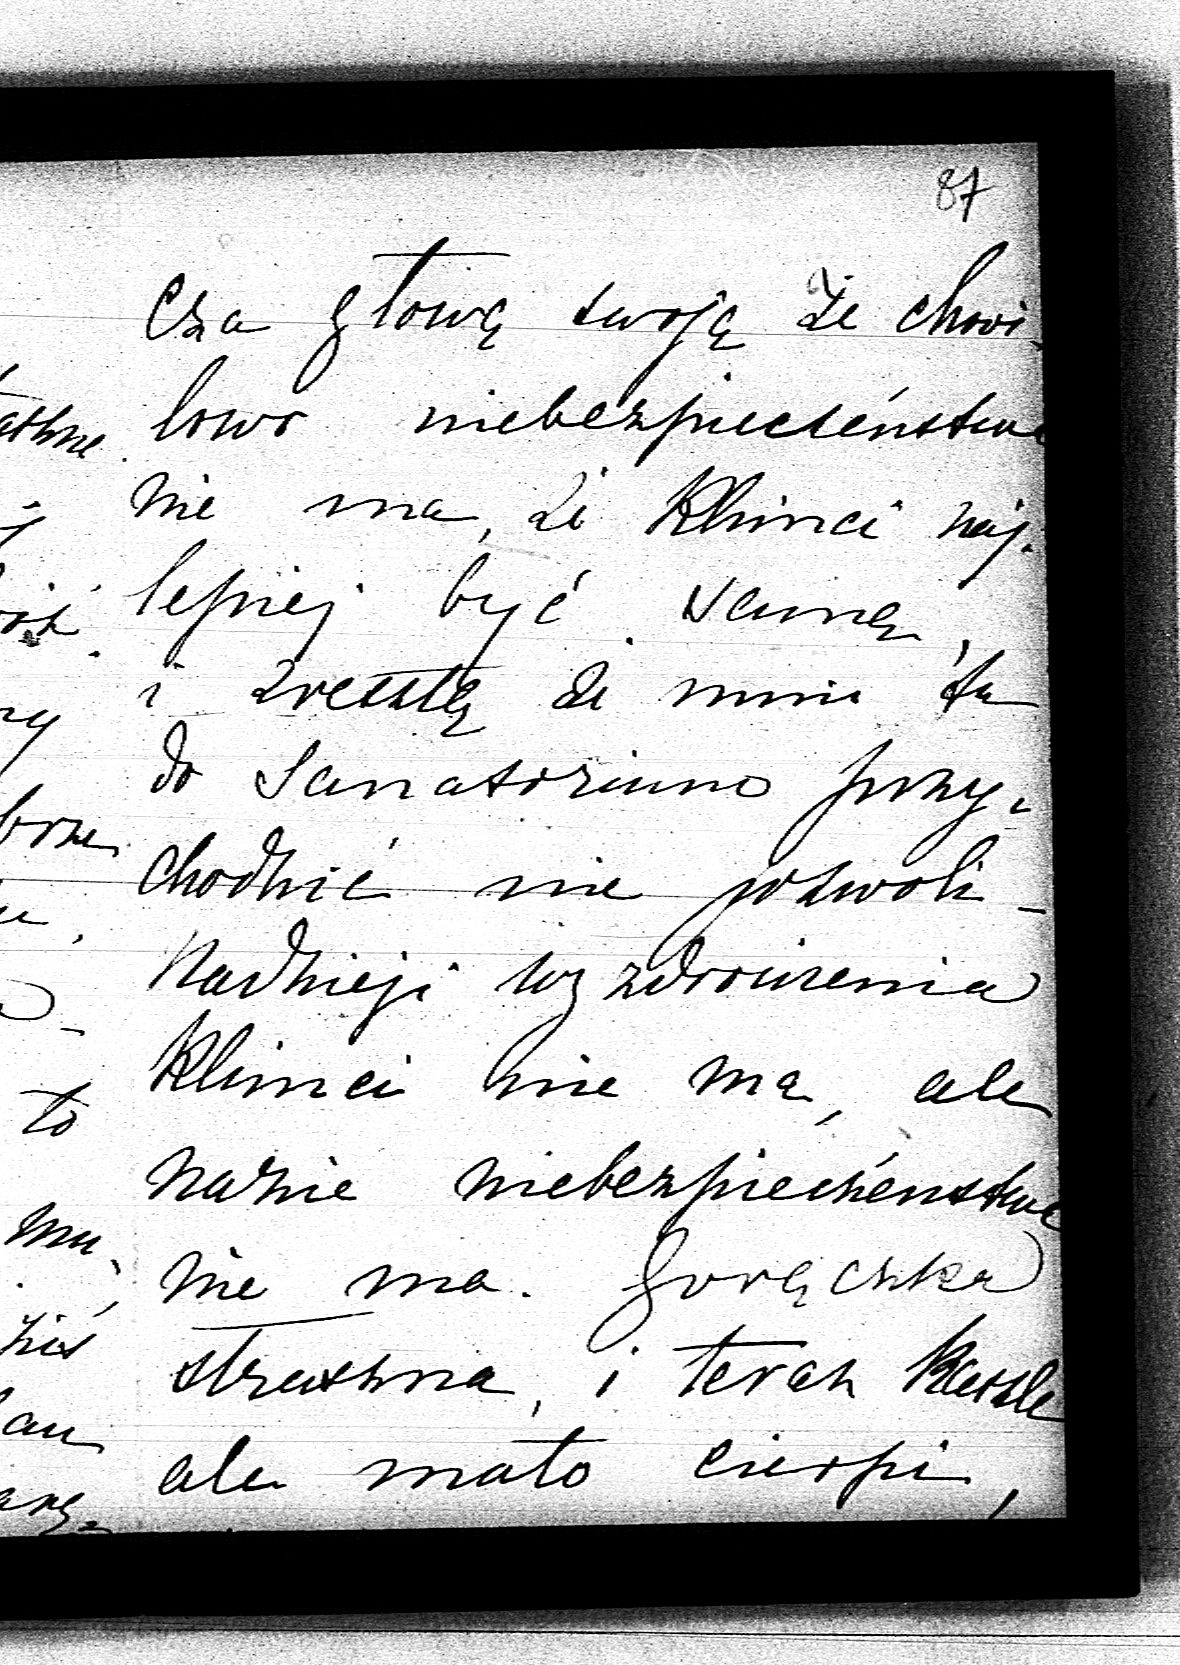 87
cza głową swoją że chwi-
lowo niebezpieczeństwa
nie ma, że Klimci naj-
lepiej być samej,
i zresztą że mnie tu
do Sanatorium przy-
chodzić nie pozwoli -
Nadzieji wyzdrowienia
Klimci nie ma, ale
nazie niebezpieczeństwa
nie ma. Gorączka
straszna, i teraz kaszle
ale mało cierpi,
to